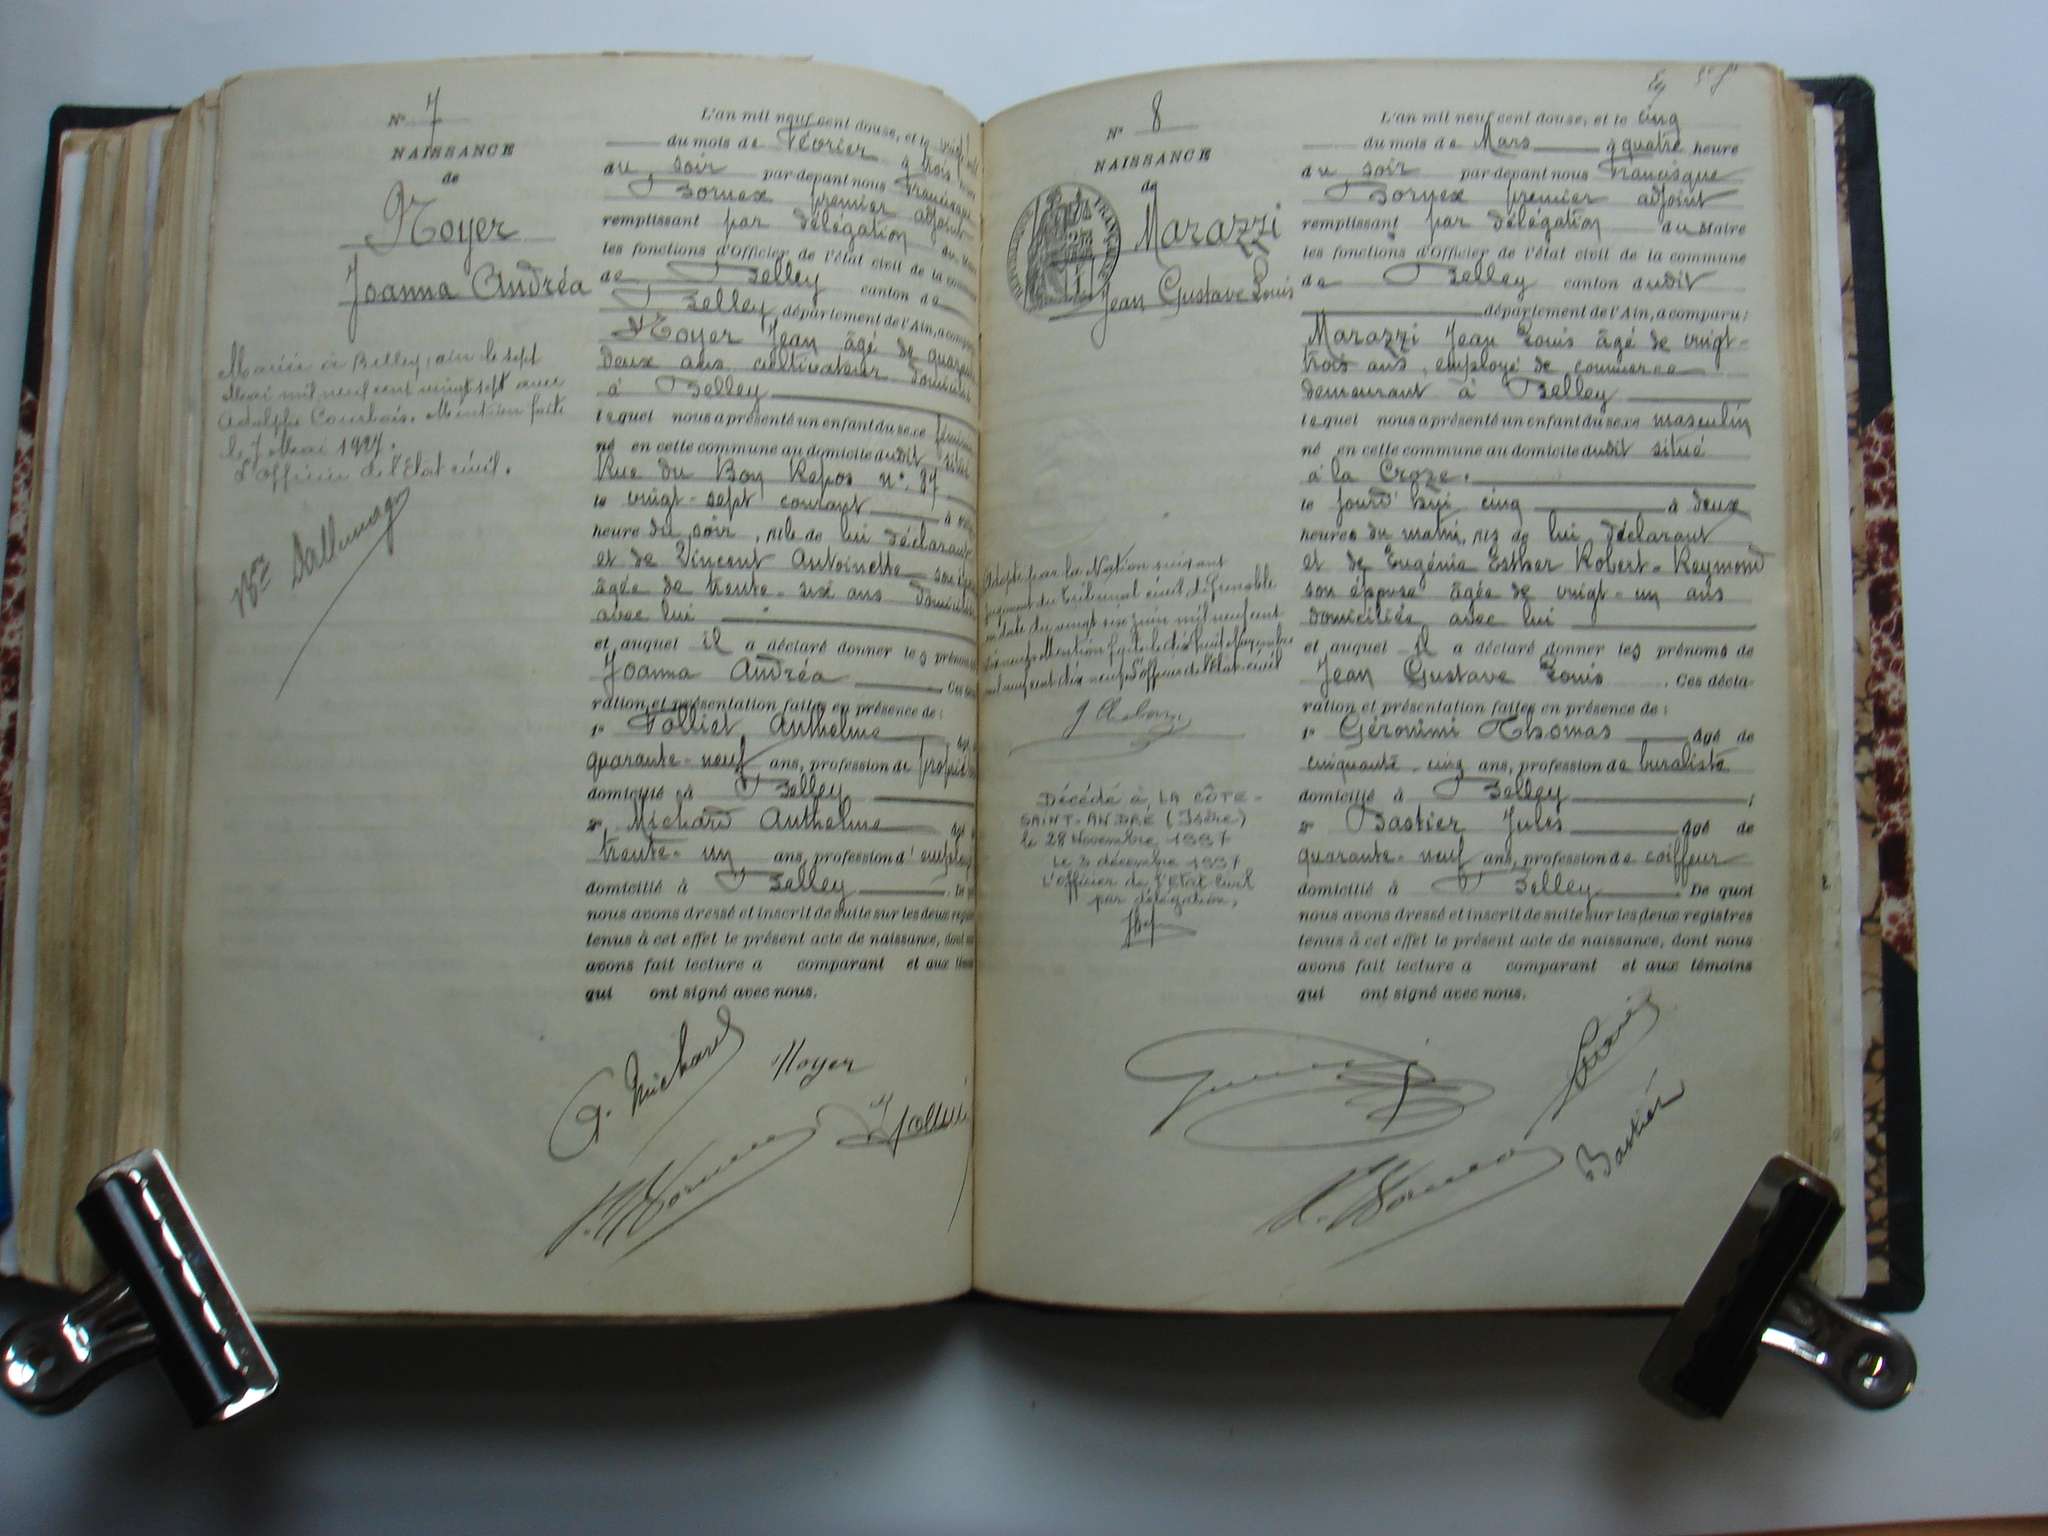 N° 7
NAISSANCE
de
Noyer
Joanna Andréa
Mariée à Belley, ain le sept
Mai mil neuf cent vingt sept avec
Adolphe Courbois. Mention faite
le 7 Mai 1927.
L'Officier de l'Etat civil.
L'an mil neuf cent douze, et le
du mois de Février à trois
du soir par-devant nous Francisque
Bornex premier adjoint
remplissant par délégation du
les fonctions d'Officier de l'état civil de la commune
de Belley canton de
Belley département de l'Ain, a comparu
Noyer Jean âgé de quarante
deux ans cultivateur domicilié
à Belley
lequel nous a présenté un enfant du sexe féminin
né en cette commune au domicile dudit situé
Rue du Bon Repos n° 87
le vingt-sept courant à
heure du soir, née de lui déclarant
et de Vincent Antoinette son
âgée de trente-six ans domiciliée
avec lui
et auquel il a déclaré donner les prénoms
Joanna Andréa Ces
ration et présentation faites en présence de :
1° Folliet Anthelme âgé
quarante-neuf ans, profession de
domicilié à Belley
2° Michard Anthelme âgé
trente-un ans, profession d'employé
domicilié à Belley De
nous avons dressé et inscrit de suite sur les deux
tenus à cet effet le présent acte de naissance, dont
avons fait lecture a comparant et aux
qui ont signé avec nous.
A. Michard Noyer
N° 8
NAISSANCE
de
Marazzi
Jean Gustave Louis
Adopté par la Nation suivant
jugement du Tribunal civil de Grenoble
en date du vingt six juin mil neuf cent
dix neuf. Mention faite le dix huit Novembre
mil neuf cent dix neuf. L'Officier de l'Etat civil
Décédé à LA CÔTE-
SAINT-ANDRÉ (Isère)
le 28 Novembre 1997
Le 2 décembre 1997
L'officier de l'Etat Civil
par délégation,
L'an mil neuf cent douze, et le cinq
du mois de Mars à quatre heure
du soir par-devant nous Francisque
Bornex premier adjoint
remplissant par délégation du Maire
les fonctions d'Officier de l'état civil de la commune
de Belley canton dudit
département de l'Ain, a comparu :
Marazzi Jean Louis âgé de vingt-
trois ans, employé de commerce
demeurant à Belley
lequel nous a présenté un enfant du sexe masculin
né en cette commune au domicile dudit situé
à la Croze.
le jourd'hui cinq à deux
heures du matin, né de lui déclarant
et de Eugénie Esther Robert-Reymond
son épouse âgée de vingt-un ans
domiciliée avec lui
et auquel il a déclaré donner les prénoms de
Jean Gustave Louis . Ces décla-
ration et présentation faites en présence de :
1° Géronimi Thomas âgé de
cinquante-cinq ans, profession de buraliste
domicilié à Belley ;
2° Bastier Jules âgé de
quarante-neuf ans, profession de coiffeur
domicilié à Belley De quoi
nous avons dressé et inscrit de suite sur les deux registres
tenus à cet effet le présent acte de naissance, dont nous
avons fait lecture a comparant et aux témoins
qui ont signé avec nous.
Bastier